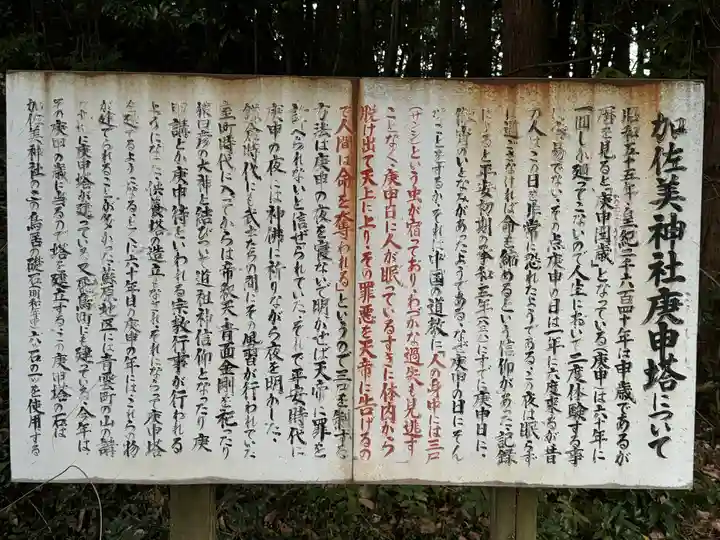 加佐美神社庚申塔について
昭和五十五年(皇紀二千六百四十年は申歳であるが
暦を見ると、庚申国歳、となっている(庚申)は六十年に
一回しか廻ってこないので人生において二度体験する事
は容易でない、その点庚申の日は一年に六度来るが昔
の人はこの日を非常に恐れたようであるこの夜は眠らず
に過ごさなければ命を縮めるという信仰があった、記録
によると平安初期の承和五年(八三八)にすでに庚申日に、
徹宵のいとなみがあったようであるなぜ庚申の日にそん
なことをするか、それは中国の道教に人の身中には三尸
(サンシ)という虫が宿っており、わづかな過失も見逃す
ことなく、庚申日に人が眠っているすきに体内から
脱け出て天上に上りその罪悪を天帝に告げるの
で人間は命を奪われる。というので三尸を制する
方法は庚申の夜を寝ないで明かせば天帝に罪を
訴へられないと信ぜられていた、それで平安時代に
庚申の夜には神佛に祈りながら夜を明かした、
鎌倉時代にも武士たちの間にその風習が行われていた
室町時代に入ってからは帝釈天青面金剛を祀ったり
猿田彦の大神と結びついて道祖神信仰となったり庚
申講とか庚申待といわれる宗教行事が行われる
ようになった、供養塔の造立となった、それにならって庚申塔
を建てるようになることに六十年目の庚申の年にはこれらの物
が建てられることが多かった、蘇原地区には青雲町の山の講
に庚申塔が建っている、又飛鳥街にも建っている、今年は
その庚申の歳に当るので塔を建立するこの庚申塔の石は
加佐美神社のこの鳥居の礎石の石の一つを使用する